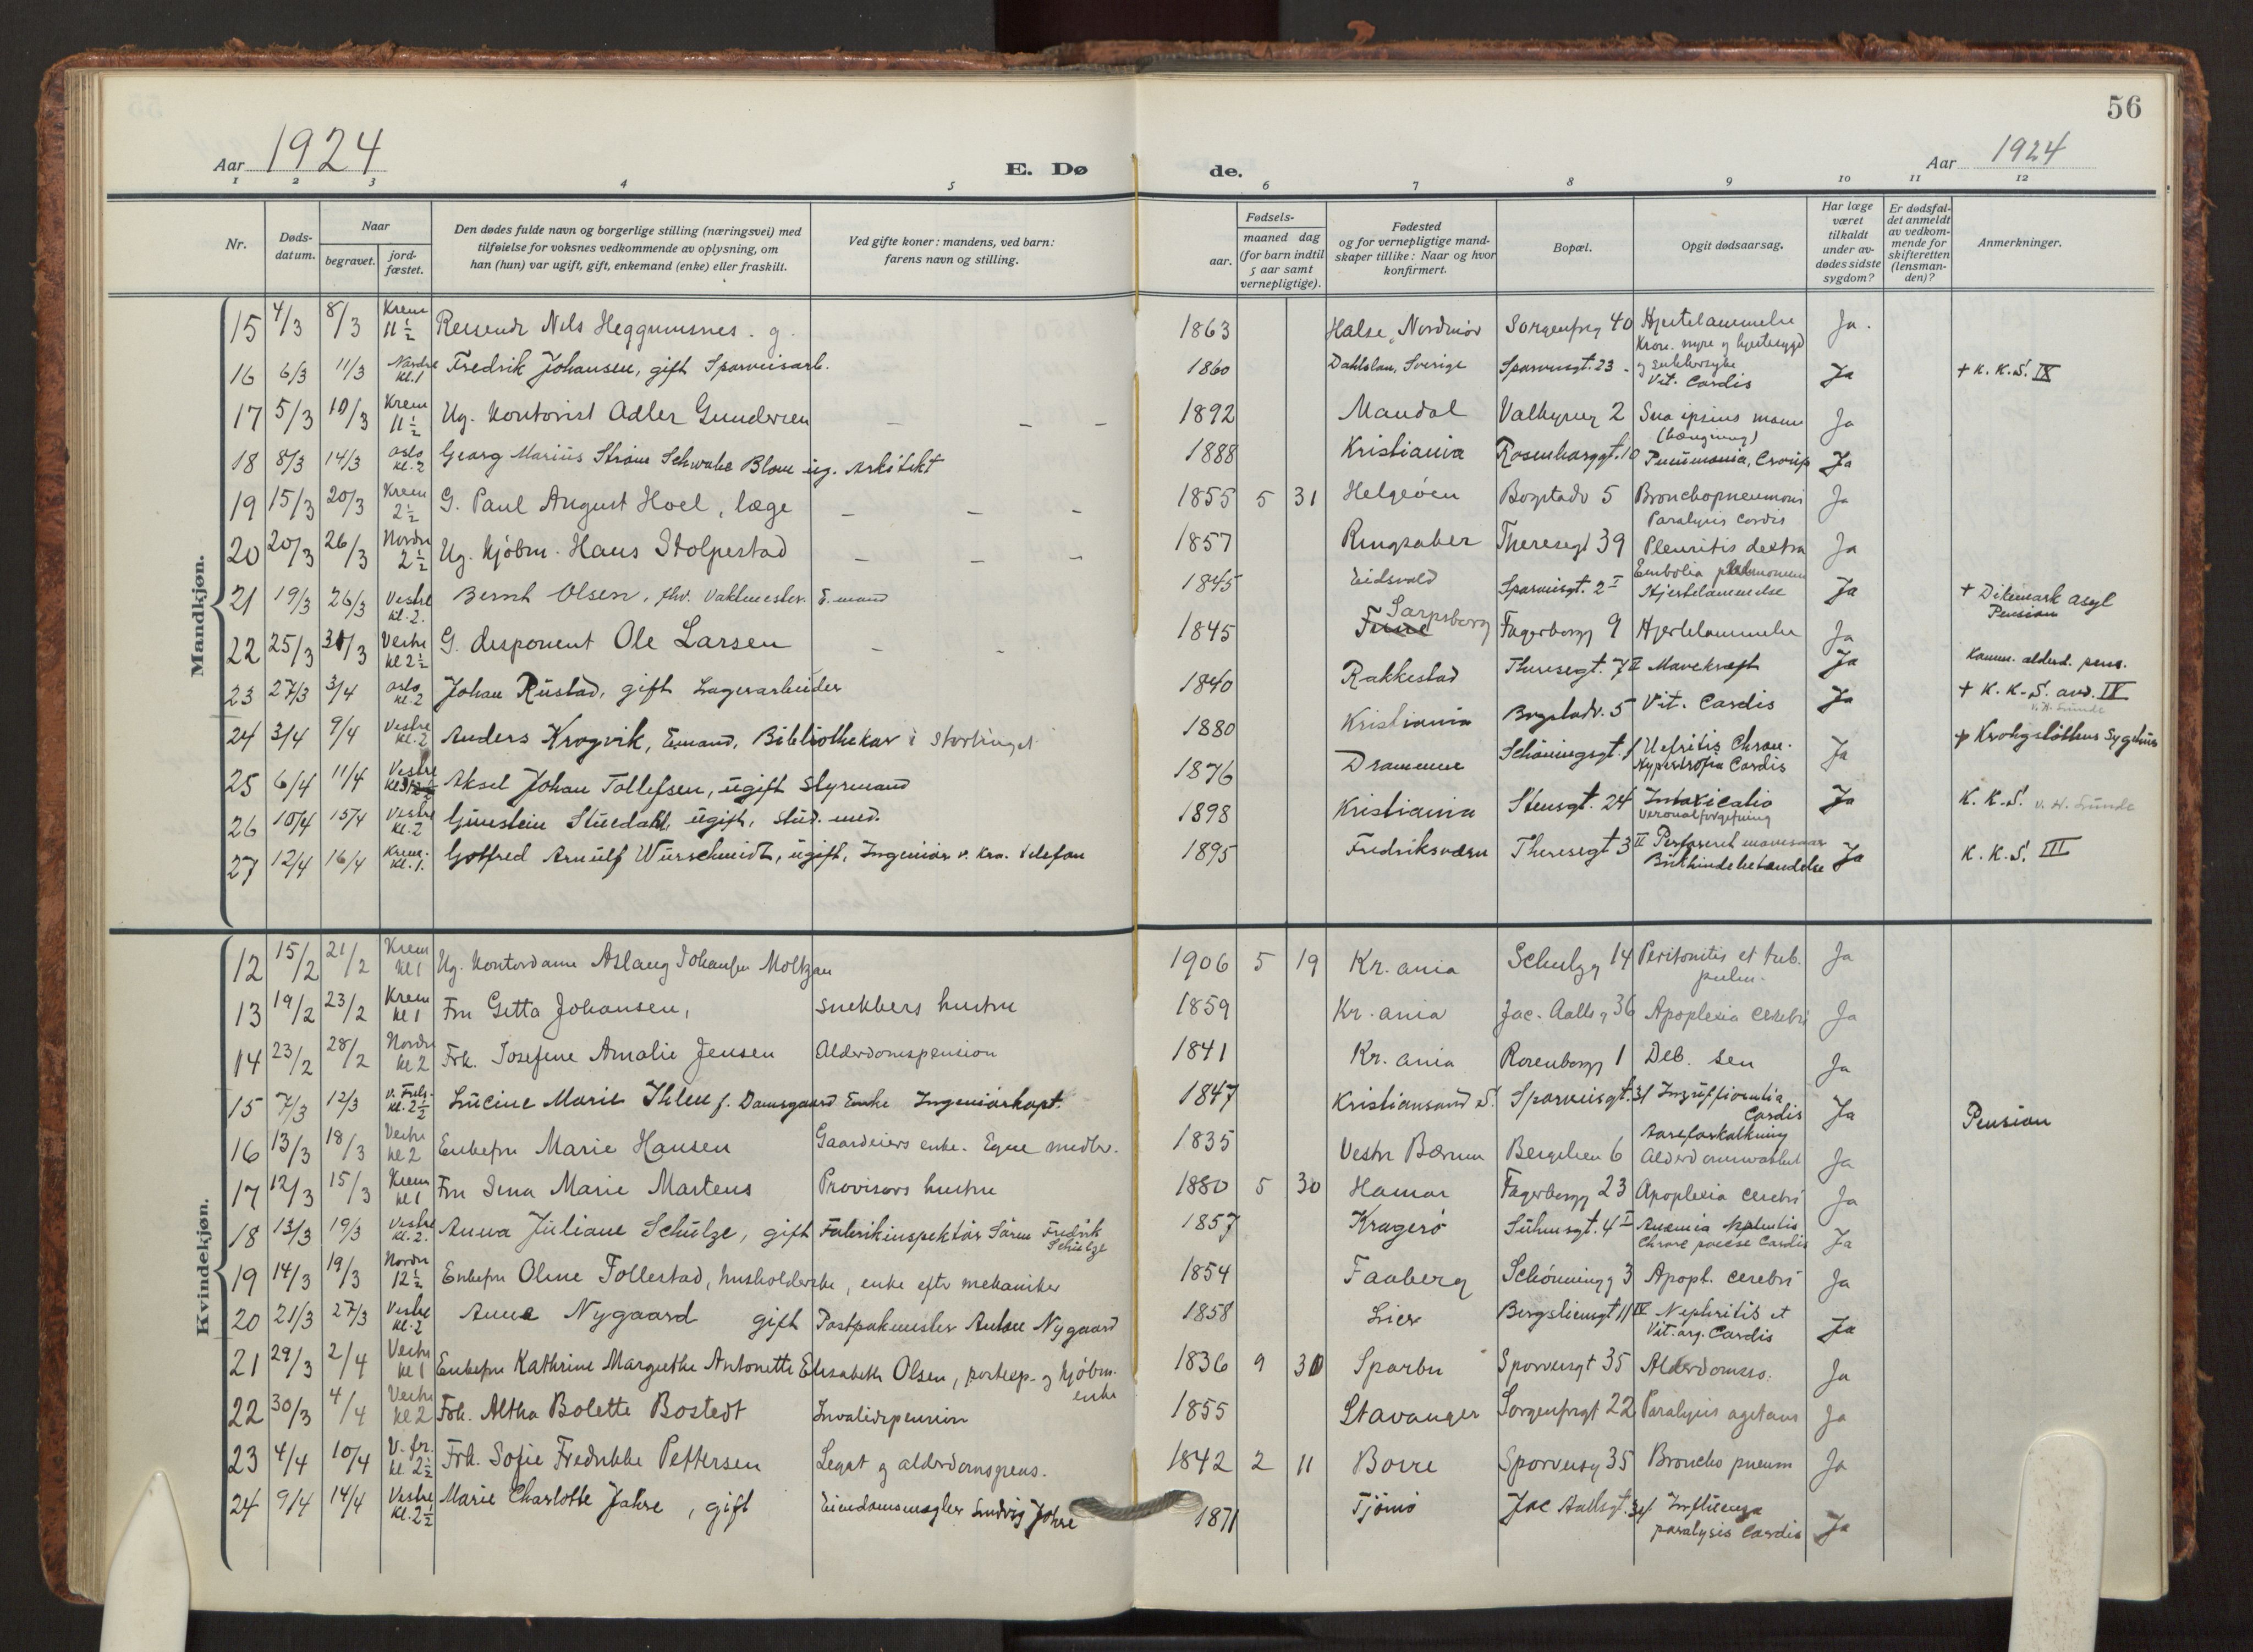 56
Aar 1924
E. Dø
de.
Aar 1924
1 2 3 4 5 6 7 8 9 10 11 12
Nr.
Døds-
datum.
Naar
begravet.
jord-
fæstet.
Den dødes fulde navn og borgerlige stilling (næringsvei) med
tilføielse for voksnes vedkommende av oplysning, om
han (hun) var ugift, gift, enkemand (enke) eller fraskilt.
Ved gifte koner: mandens, ved barn:
farens navn og stilling.
Fødsels-
aar.
maaned dag
(for barn indtil
5 aar samt
vernepligtige).
Fødested
og for vernepligtige mand-
skaper tillike: Naar og hvor
konfirmert.
Bopæl.
Opgit dødsaarsag.
Har læge
været
tilkaldt
under av-
dødes sidste
sygdom?
Er dødsfal-
det anmeldt
av vedkom-
mende for
skifteretten
(lensman-
den)?
Anmerkninger.
Mandkjøn.
15 4/3 8/3 Krem 11 1/2 Reisende Nils Heggumsnes. g. 1863 Halse, Nordmør Sorgenfrig 40 Hjertelammelse Ja.
16 6/3 11/3 Nordre kl. 1 Fredrik Johansen, gift Sporveisarb. 1860 Dahlsland, Sverige Sporveisgt. 23 Kron. nyre og hjertesygd og sukkersyke Vit. Cordis Ja + K. K. S. IX
17 5/3 10/3 Krem 11 1/2 Ug. Kontorist Adler Gundersen - - - 1892 Mandal Valkyrieg 2 Sua ipsius manu (hængning) Ja
18 8/3 14/3 Oslo kl. 2 Georg Marius Strøm Schwabe Blom ug. Arkitekt 1888 Kristiania Rosenborggt. 10 Pneumonia, Croup Ja
19 15/3 20/3 Krem 2 1/2 G. Paul August Hoel, læge - - - 1855 5 31 Helgeöen Bogstadv 5 Bronchopneumoni Paralysis cordis Ja
20 20/3 26/3 Nordre 2 1/2 Ug. Kjøbm. Hans Stolpestad - - - 1857 Ringsaker Theresegt 39 Pleuritis dextra Embolia pulmonum Ja
21 19/3 26/3 Vestre kl. 2. Bernt Olsen, fhv. Vaktmester. E. mand 1845 Eidsvold Sporveisgt. 2 I Hjertelammelse Ja + Dikemark asyl Pension
22 25/3 31/3 Vestre kl 2 1/2 G. disponent Ole Larsen - - 1845 Sarpsborg Fagerborgg 9 Hjertelammelse Ja
23 27/3 3/4 Oslo kl. 2 Johan Rustad, gift Lagerarbeider 1840 Rakkestad Theresegt. 7 II Mavekræft Ja Komm. alderd. pens.
24 3/4 9/4 Vestre kl. 2 Anders Krogvik, Emand, Bibliothekar i Stortinget 1880 Kristiania Bogstadv. 5 Vit. Cordis Ja + K. K. S. avd. IV
25 6/4 11/4 Vestre Aksel Johan Tollefsen, ugift Styrmand 1876 Drammen Schöningsgt. 1 Nefritis Chron. Hypertrofia Cordis Ja + Krohgstöttens Sygehus
26 10/4 15/4 Vestre kl. 2 Gunstein Stuedahl, ugift, stud. med. 1898 Kristiania Stensgt. 24 Intoxicatio Veronalforgiftning Ja K. K. S. v. H. Sunde
27 12/4 16/4 Krem. kl. 1. Gotfred Arnulf Wurschmidt, ugift, Ingeniør v. Kra. telefon 1895 Fredriksværn Theresegt 3 II Perforeret mavesaar Bukhindebetændelse Ja K. K. S. III
Kvindekjøn.
12 15/2 21/2 Krem kl 1 Ug. Kontordame Aslaug Johansen Moltzau 1906 5 19 Kr. ania Schulzg 14 Peritonitis et tub. pulm. Ja
13 19/2 23/2 Krem kl 1 Fru Getta Johansen, snekkers hustru 1859 Kr. ania Jac. Aallsg 36 Apoplexia cerebri Ja
14 23/2 28/2 Nordre kl 2 Frk. Josefine Amalie Jensen Alderdomspension 1841 Kr. ania Rosenborgg 1 Deb. sen Ja
15 7/3 12/3 V. Frels. kl. 2 1/2 Lucine Marie Ihlen f. Damsgaard Enke Ingeniørkapt. 1847 Kristiansand S. Sporveisgt. 31 Insufficientia Cordis Ja Pension
16 13/3 18/3 Vestre kl 2 Enkefru Marie Hansen Gaardeiers enke. Egne midler. 1835 Vestre Bærum Bergslien 6 Aareforkalkning Alderdomssvakhet Ja
17 12/3 15/3 Krem kl 1 Fru Sina Marie Martens Provisors hustru 1880 5 30 Hamar Fagerborgg 23 Apoplexia cerebri Ja
18 13/3 19/3 Vestre kl. 2. Anna Juliane Schulze, gift Fabrikinspektør Sören Fredrik Schulze 1857 Kragerö Suhmsgt. 4 I Ja
19 14/3 19/3 Nordre 12 1/2 Enkefru Oline Follestad, husholderske, enke efter mekaniker 1854 Faaberg Schönningg 3 Apopl. cerebri Ja
20 21/3 27/3 Vestre kl. 2 Anna Nygaard gift Postpakmester Anton Nygaard 1858 Lier Bergsliensgt 11 IV Nephritis et Vit. org. Cordis Ja
21 29/3 2/4 Vestre kl 1 Enkefru Kathrine Margrethe Antonette Elisabeth Olsen, postexp. og kjøbm. enke 1836 9 30 Sparbu Sporveisgt 35 Alderdomss. Ja
22 30/3 4/4 Vestre kl 2 Frk. Altha Bolette Bostedt Invalidepension 1855 Stavanger Sorgenfrigt 22 Paralysis agitans Ja
23 4/4 10/4 V. fr. kl 2 1/2 Frk. Sofie Fredrikke Pettersen Legat og alderdomspens. 1842 2 11 Borre Sporveisg 35 Broncho pneum Ja
24 9/4 14/4 Vestre kl. 2 1/2 Marie Charlotte Jahre, gift Eiendomsmægler Ludvig Jahre 1871 Tjömö Jac Aallsgt. 34 Influenza paralysis Cordis Ja